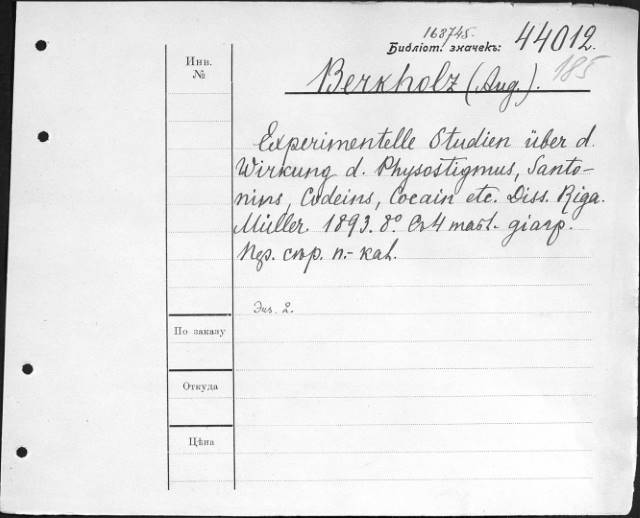 168745.
Библіот. значекъ: 44012.
185
Инв.
№
Berkholz (Aug.).
Experimentelle Studien über d.
Wirkung d. Physostigmins, Santo-
nins, Codeins, Cocain etc. Diss. Riga.
Müller. 1893. 8° Съ 4 табл. діагр.
Пер. стр. п.-кал.
Экз. 2.
По заказу
Откуда
Цѣна